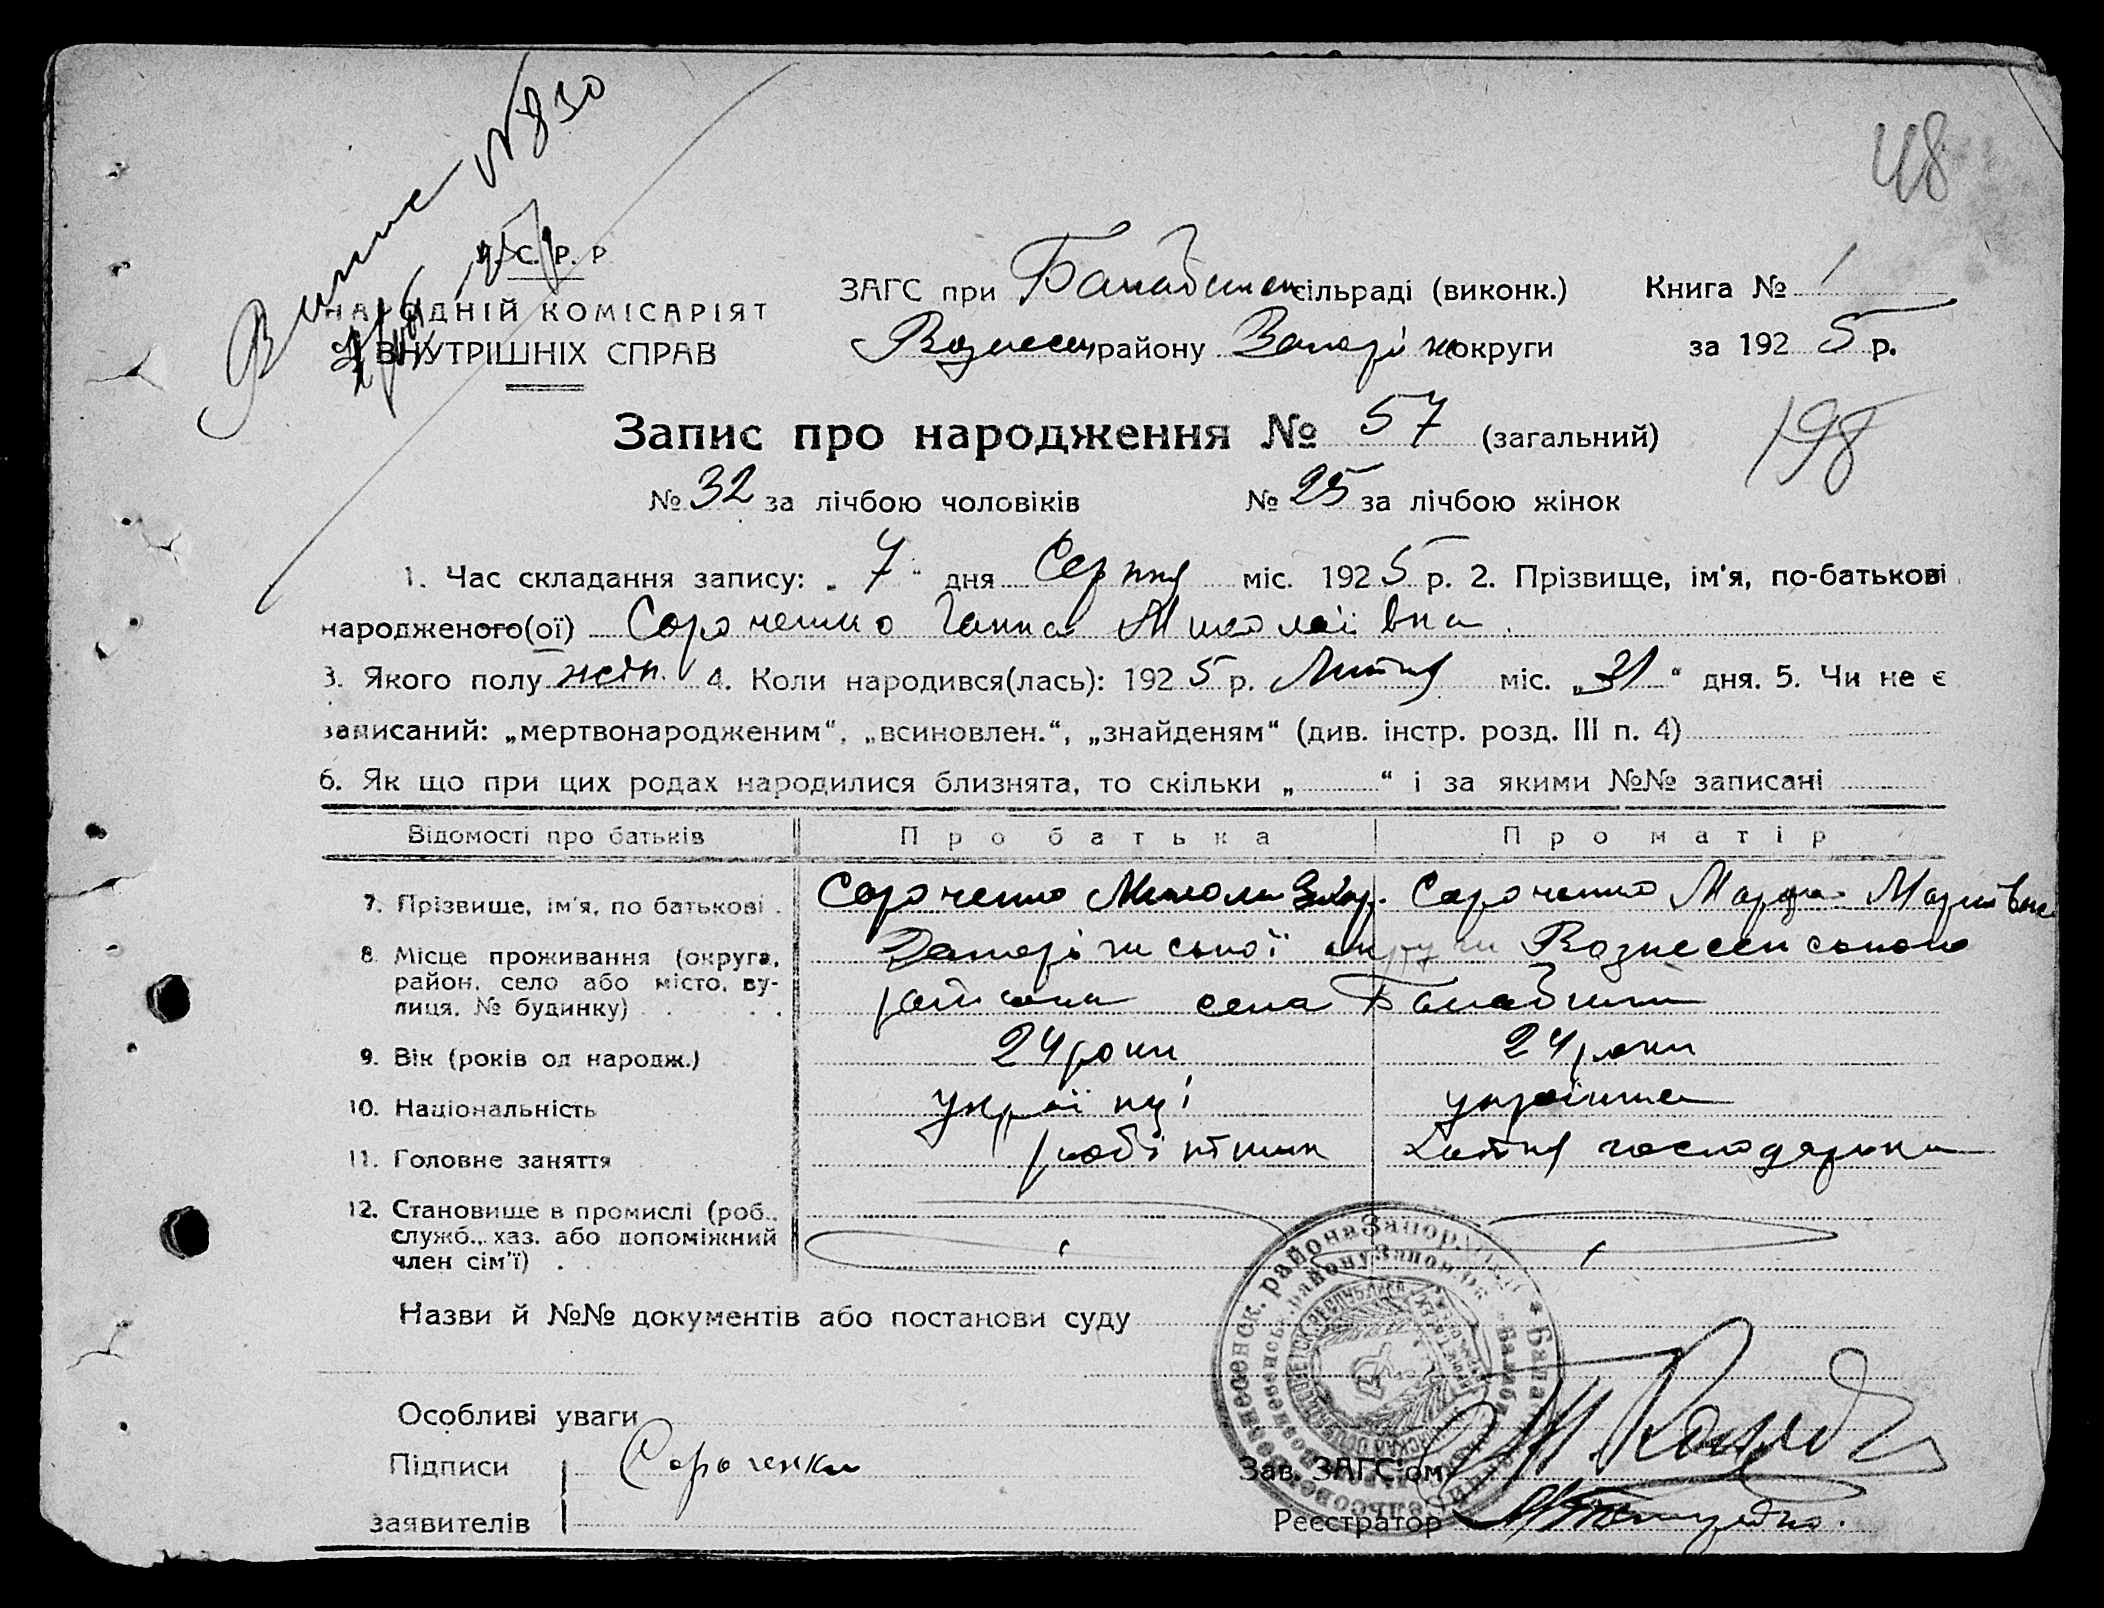 Випис №830
48
У. С. Р. Р
НАРОДНІЙ КОМІСАРІЯТ
ВНУТРІШНІХ СПРАВ
ЗАГС при Балабинск сільраді (виконк.) Книга № 1
Вознесен району Запоріж округи за 1925 р.
Запис про народження № 57 (загальний)
198
№ 32 за лічбою чоловіків № 25 за лічбою жінок
1. Час складання запису: „7“ дня Серпня міс. 1925 р. 2. Прізвище, ім'я, по-батькові
народженого(ої) Сороченко Ганна Миколаївна
3. Якого полу жін. 4. Коли народився(лась): 1925 р. Липня міс. „31“ дня. 5. Чи не є
записаний: „мертвонародженим“, „всиновлен.“, „знайденям“ (див. інстр. розд. III п. 4)
6. Як що при цих родах народилися близнята, то скільки „ “ і за якими №№ записані
Відомості про батьків Про батька Про матір
7. Прізвище, ім'я, по батькові Сороченко Микола Захар. Сороченко Марфа Марківна
8. Місце проживання (округа, Запоріжської округи Вознесенського
район, село або місто, ву-
лиця, № будинку) района села Балабина
9. Вік (років од народж.) 24 роки 24 роки
10. Національність українці українка
11. Головне заняття робітник Хатня господарка
12. Становище в промислі (роб.,
служб., хаз. або допоміжний
член сім'ї)
Назви й №№ документів або постанови суду
Особливі уваги
Підписи Сороченко
заявителів
Зав. ЗАГС'ом
Реєстратор